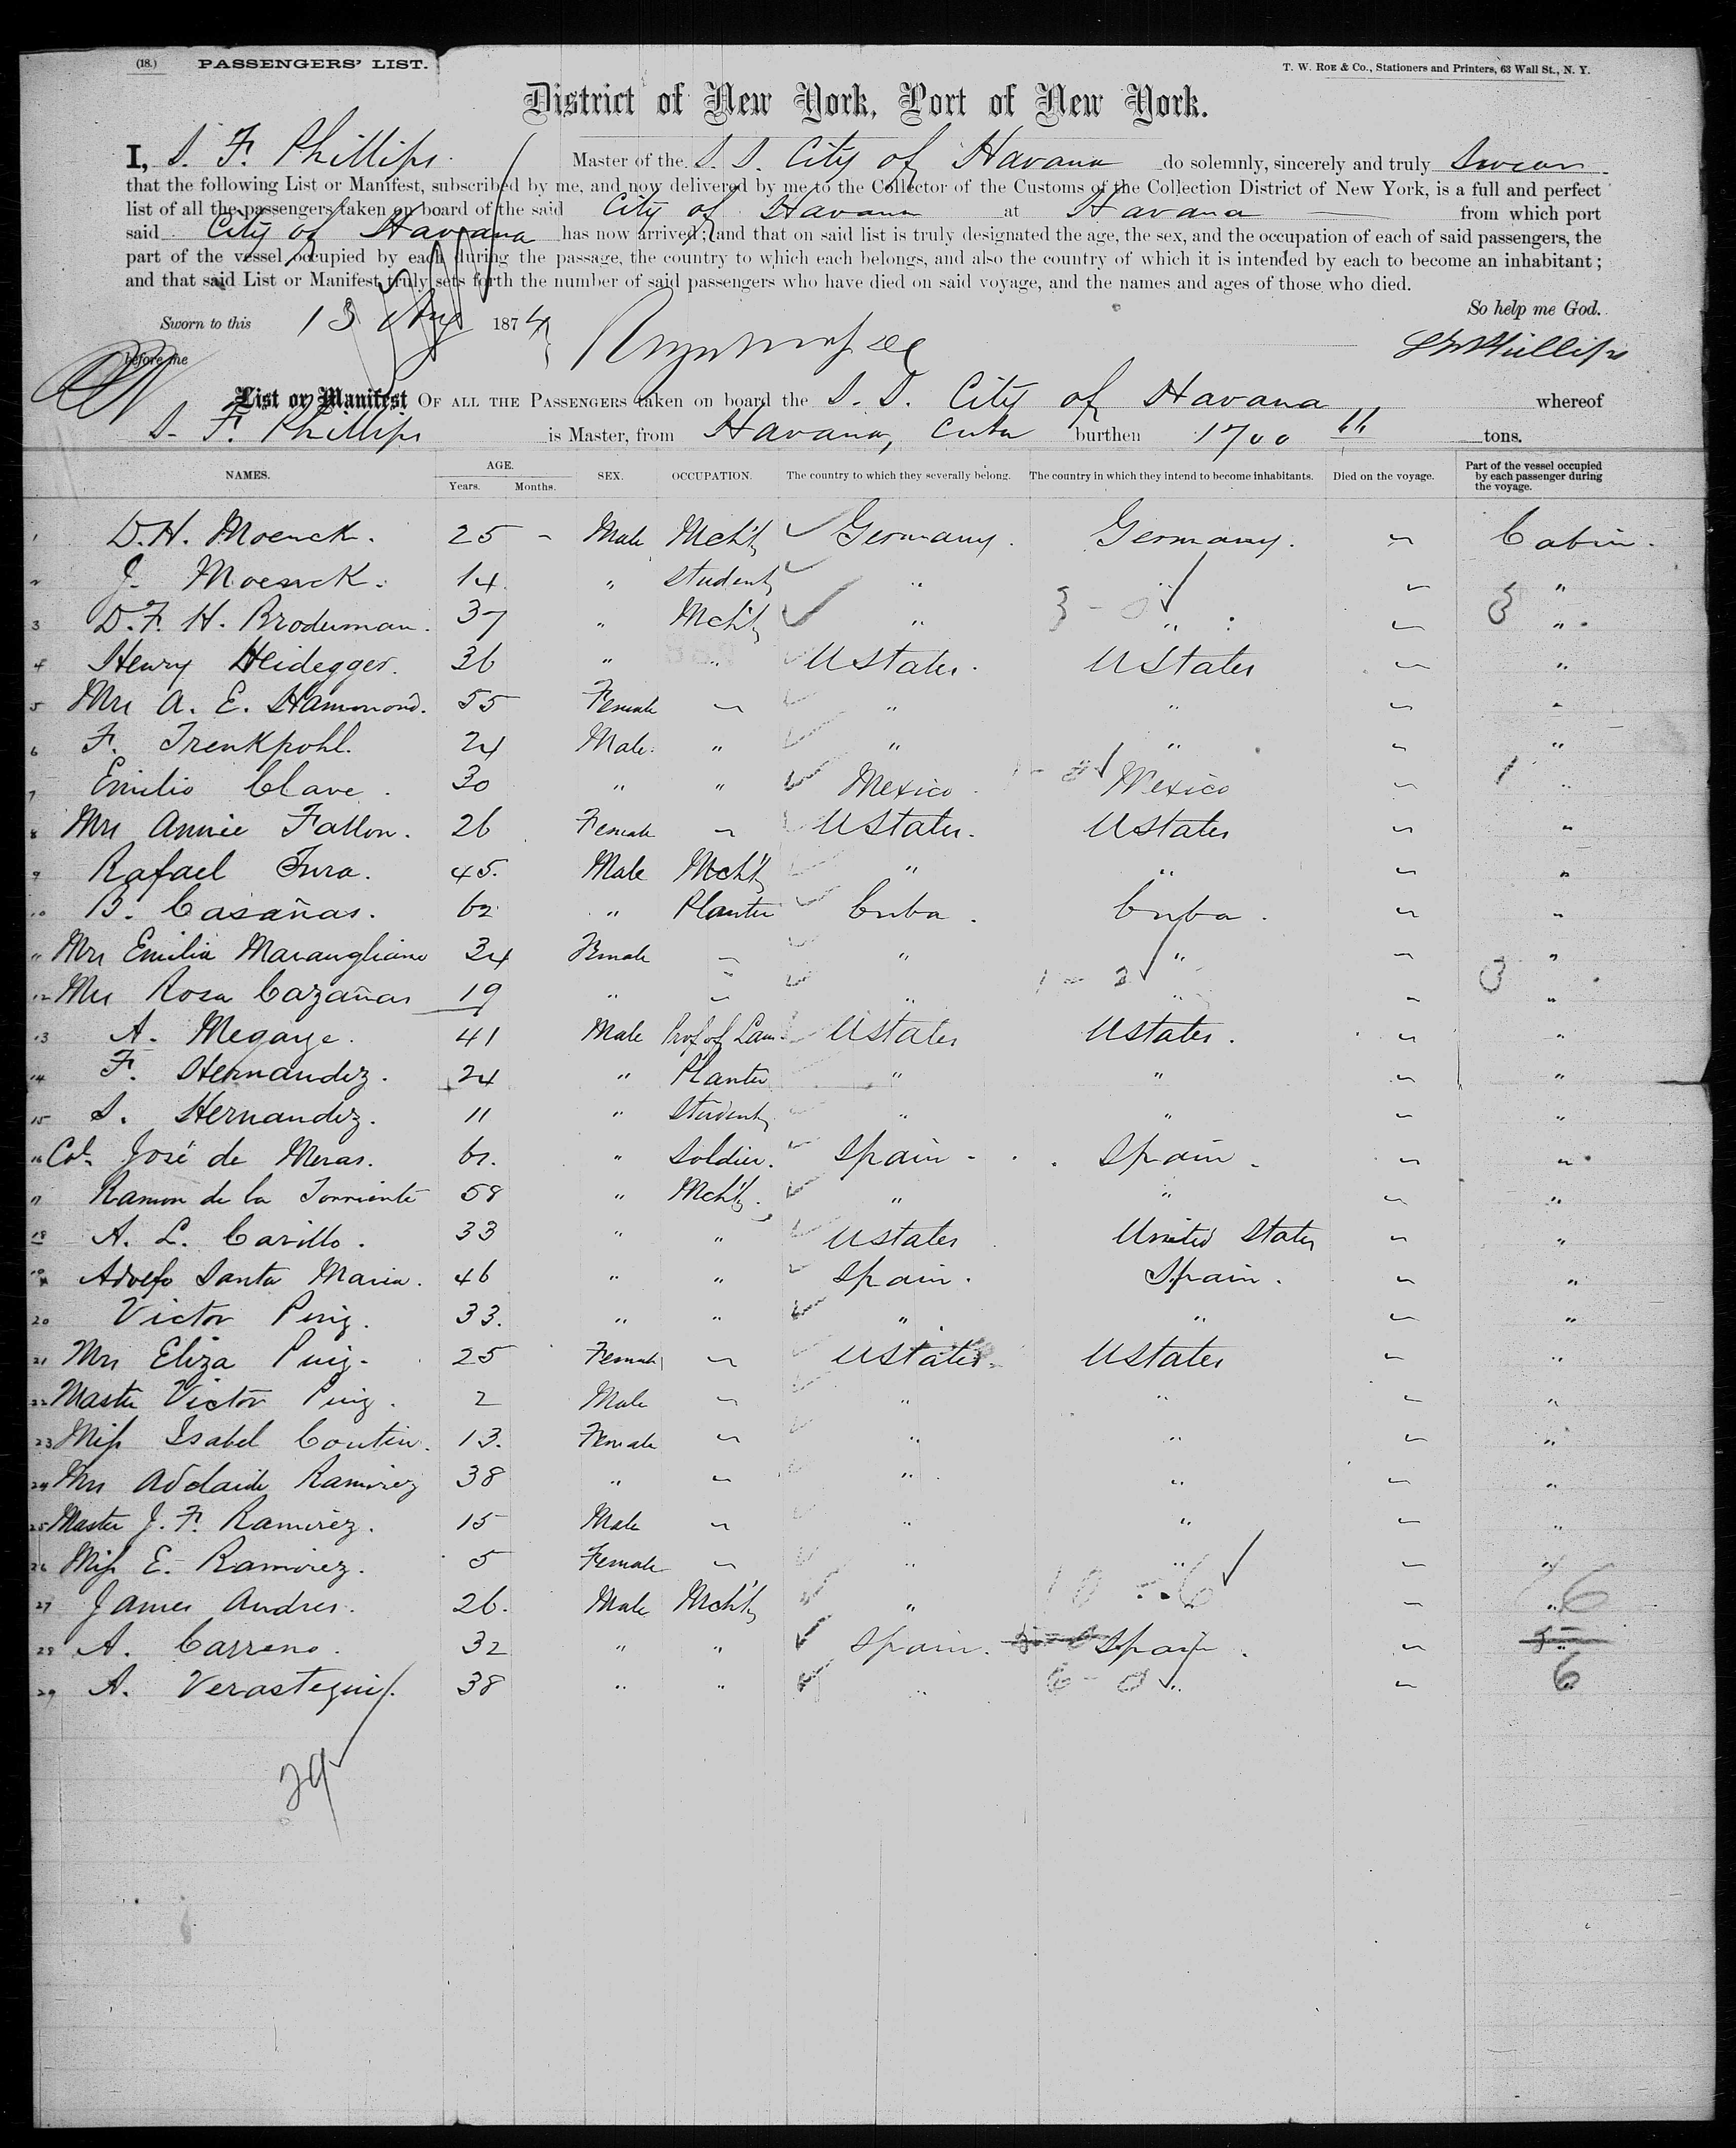 (18.) PASSENGERS' LIST. T. W. ROE & CO., Stationers and Printers, 63 Wall St., N. Y.
District of New York, Port of New York.
I, S. F. Phillips. Master of the S. S. City of Havana do solemnly, sincerely and truly Swear
that the following List or Manifest, subscribed by me, and now delivered by me to the Collector of the Customs of the Collection District of New York, is a full and perfect
list of all the passengers taken on board of the said City of Havana at Havana from which port
said City of Havana has now arrived; and that on said list is truly designated the age, the sex, and the occupation of each of said passengers, the
part of the vessel occupied by each during the passage, the country to which each belongs, and also the country of which it is intended by each to become an inhabitant;
and that said List or Manifest truly sets forth the number of said passengers who have died on said voyage, and the names and ages of those who died.
So help me God.
Sworn to this 13 Aug 1874
before me S F Phillips
List or Manifest OF ALL THE PASSENGERS taken on board the S. S. City of Havana whereof
S. F. Phillips is Master, from Havana, Cuba burthen 1700 tons.
NAMES. AGE. Years. Months. SEX. OCCUPATION. The country to which they severally belong. The country in which they intend to become inhabitants. Died on the voyage. Part of the vessel occupied by each passenger during the voyage.
1 D. H. Moenck. 25 - Male Mcht Germany. Germany. " Cabin.
2 J. Moenck. 14 " Student " " " "
3 D. F. H. Broduman. 37 " Mcht " 3 - 0 " " 3 "
4 Henry Heidegger. 36 " " U States. U States " "
5 Mrs A. E. Hammond. 55 Female " " " " "
6 F. Trenkpohl. 24 Male. " " " " "
7 Emilio Clave. 30 " " Mexico 1 - 0 Mexico " 1 "
8 Mrs Annie Fallon. 26 Female " U States. U States " "
9 Rafael Jura. 45. Male Mcht " " " "
10 B. Casañas. 62 " Planter Cuba. Cuba. " "
11 Mrs Emilia Maraugliano 34 Female " " " " "
12 Mrs Rosa Cazañas 19 " " " 1 - 2 " " 3 "
13 A. Megaye. 41 Male Prof of Lan. U States U States. " "
14 F. Hernandez. 24 " Planter " " " "
15 S. Hernandez. 11 " Student " " " "
16 Col. José de Meras. 61. " Soldier. Spain Spain. " "
17 Ramon de la Torriente 58 " Mcht. " " " "
18 A. L. Carillo. 33 " " U States United States " "
19 Adolfo Santa Maria. 46 " " Spain. Spain. " "
20 Victor Puig. 33. " " " " " "
21 Mrs Eliza Puig. 25 Female " U States. U States " "
22 Master Victor Puig. 2 Male " " " " "
23 Miss Isabel Coutin. 13. Female " " " " "
24 Mrs Adelaide Ramirez 38 " " " " " "
25 Master J. F. Ramirez. 15 Male " " " " "
26 Miss E. Ramirez. 5 Female " " " " "
27 James Andres. 26. Male Mcht " 10 - 6 " " 6
28 A. Carreno. 32 " " Spain. Spain. " "
29 A. Verastegui. 38 " " " 6 - 0 " " 6
29